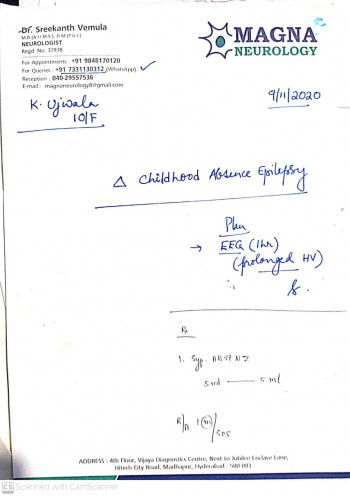 Dr. Sreekanth Vemula
M.D (A.I.I.M.S.), D.M (P.G.I)
NEUROLOGIST
Regd. No. 37938
For Appointments : +91 9848170120
For Queries : +91 7331130312 (WhatsApp)
Reception : 040-29557536
E-mail : magnaneurology@gmail.com
MAGNA
NEUROLOGY
K. Ujwala
10/F
9/11/2020
Δ Childhood Absence Epilepsy
Plan
→ EEG (1hr)
(prolonged HV)
Rx
1. Syp. ABSENZ
5ml — 5ml
R/A 1(m)/SOS
ADDRESS : 4th Floor, Vijaya Diagnostics Centre, Next to Jubilee Enclave Lane,
Hitech City Road, Madhapur, Hyderabad - 500 081.
CS Scanned with CamScanner